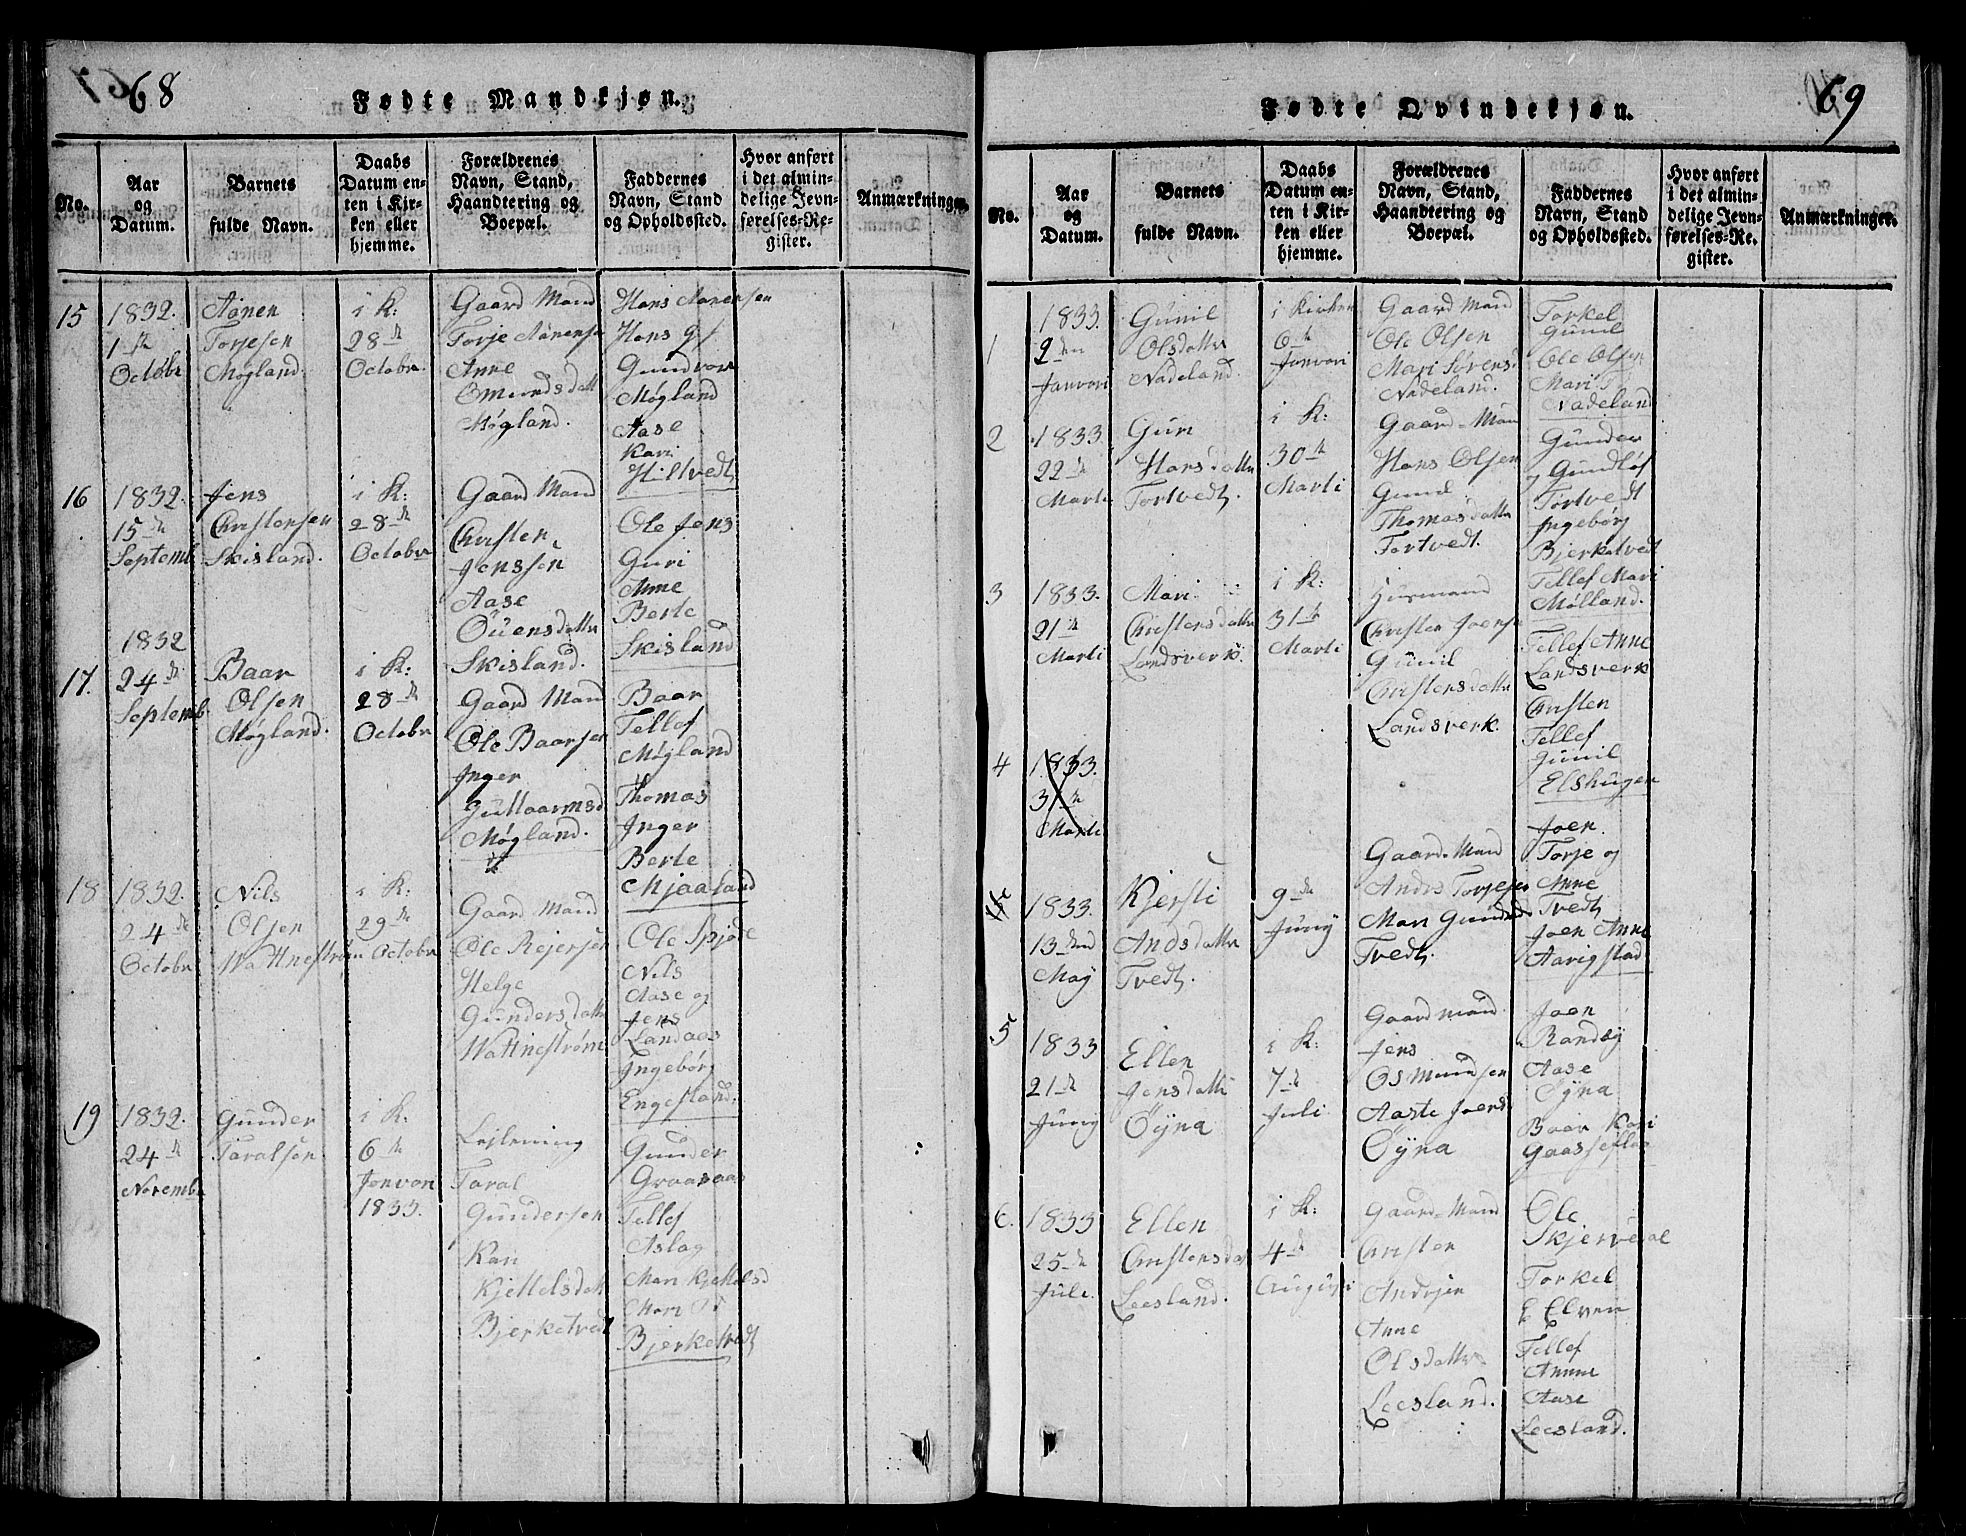 68
Fødte Mandkjøn.
No.
Aar
og
Datum.
Barnets
fulde Navn.
Daabs
Datum en-
ten i Kir-
ken eller
hjemme.
Forældrenes
Navn, Stand,
Haandtering og
Boepæl.
Faddernes
Navn, Stand
og Opholdssted.
Hvor anført
i det almin-
delige Jevn-
førelses-Re-
gister.
Anmærkninger.
15
1832.
1ste
Octobr
Aanen
Torjesen
Møgland.
i K:
28de
Octobr.
Gaard Mand
Torje Aanensen
Anne
Omunds datt
Møgland.
Hans Aanensen
Hans
Gundvor
Møgland
Aase
Kari
Hiltvedt
16
1832.
15de
Septemb
Jens
Christensen
Skisland.
i K:
28de
Octobr
Gaard Mand
Christen
Jenssen
Aase
Ouensdattr
Skisland.
Ole Jens
Guri
Anne
Berte
Skisland
17.
1832
24de
Septemb
Baar
Olsen
Møgland.
i K:
28de
Octobr
Gaard Mand
Ole Baarsen
Inger
Gullaarmsd
Møgland.
Baar
Tellef
Møgland
Thomas
Inger
Berte
Mjaaland
18
1832.
24de
Octobr
Nils
Olsen
Wattnestrøm
i K:
29de
Octobr
Gaard Mand
Ole Rejersen
Helge
Gundersdattr
Wattnestrøm
Ole Spjøte
Nils
Aase og
Jens
Landaas
Ingebørg
Engesland.
19
1832.
24de
Novembr
Gunder
Taralsen
i K:
6te
Janvari
1833.
Lejlening
Taral
Gundersen
Kari
Kjettelsdatt
Bjerketvedt
Gunder
Graaraas
Tellef
Aslag
Mari Kjettelsd
Mari
Bjerketvedt
69
Fødte Qvindekjøn.
No.
Aar
og
Datum.
Barnets
fulde Navn.
Daabs
Datum en-
ten i Kir-
ken eller
hjemme.
Forældrenes
Navn, Stand,
Haandtering og
Boepæl.
Faddernes
Navn, Stand
og Opholdssted.
Hvor anført
i det almin-
delige Jevn-
førelses-Re-
gister.
Anmærkninger.
1
1833.
2den
Janvari
Gunil
Olsdattr
Nadeland.
i Kirken
6te
Janvari
Gaard Mand
Ole Olsen
Mari Sørens
Nadeland.
Torkel
Gunil
Ole Olsen
Mari
Nadeland
2
1833.
22de
Marti
Guri
Hansdattr
Tortvedt.
i K:
30te
Marti
Gaard-Man
Hans Olsen
Gunil
Thomasdattr
Tortvedt.
Gunder
og Gundløf
Tortvedt
Ingebørg
Bjerketvedt
Tellef Mari
Mølland.
3
1833.
21de
Marti
Mari
Christensdattr
Landsverk.
i K:
31te
Marti
Husmand
Christen Joense
Gunil
Christensdattr
Landsverk.
Tellef Anne
Landsverk
Christen
Tellef
Gunil
Elshugen
4
1833.
31te
Marti
1833.
13dend
May
Kjersti
Andsdattr
Tvedt.
9de
Juny
Gaard-Mand
Anders Torjesen
Mari Gundersd
Tvedt.
Joen.
Torje og
Anne
Tvedt
Joen Anne
Aarigstad
5
1833
21de
Juny
Ellen
Jensdattr
Øyna
i K:
7de
Juli
Gaardmand
Jens
Osmundsen
Aaste Joensd
Øyna
Joen
Randøy
Aase
Øyna
Baar Kari
Gaasseflaa
6.
1833
25de
Juli.
Ellen
Christensdatt
Leesland.
i K:
4de
August
Gaard-Mand
Christen
Andrsen
Anne
Olsdattr
Leesland.
Ole
Skjerveal
Torkel
E Elven
Tellef
Annne
Aase
Leesland.